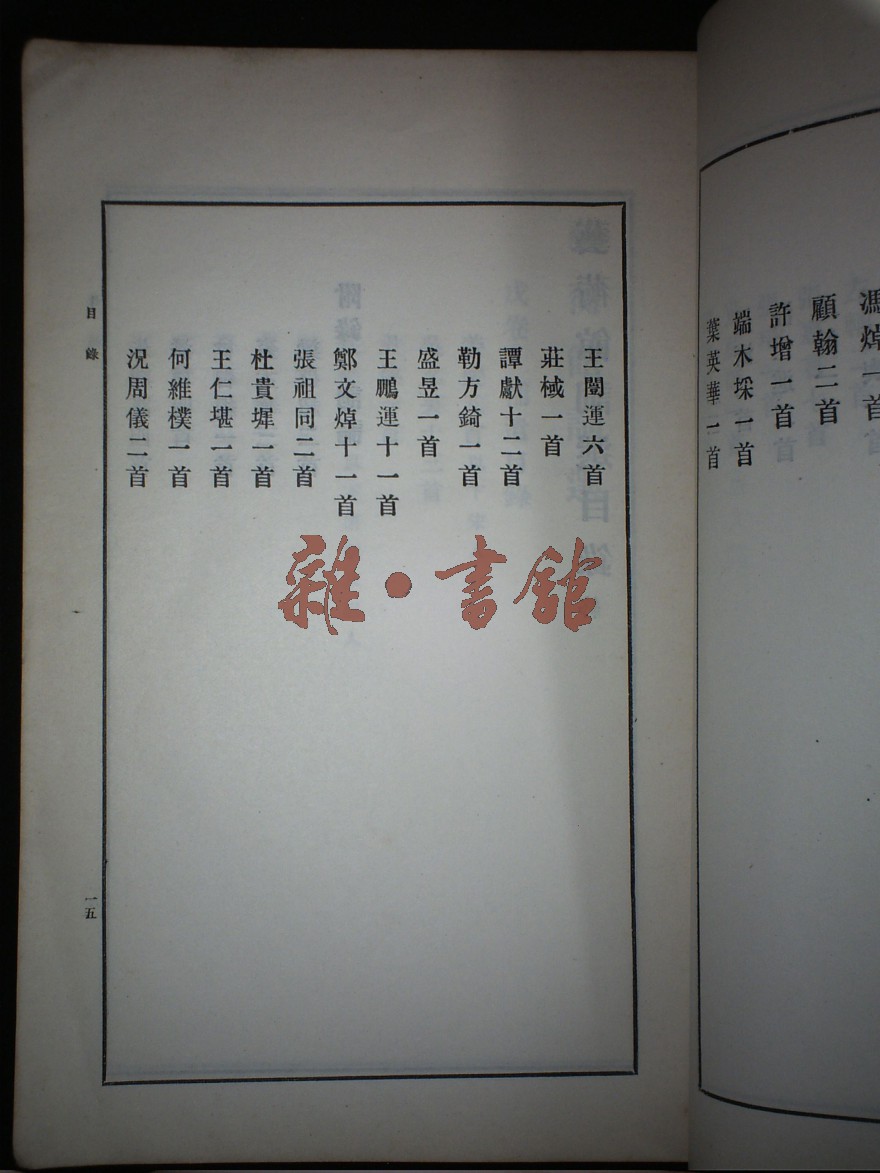 馮焯一首
顧翰二首
許增一首
端木埰一首
葉英華一首
王闓運六首
莊棫一首
譚獻十二首
勒方錡一首
盛昱一首
王鵬運十一首
鄭文焯十一首
張祖同二首
杜貴墀一首
王仁堪一首
何維樸一首
況周儀二首
目錄
一五
雜·書館